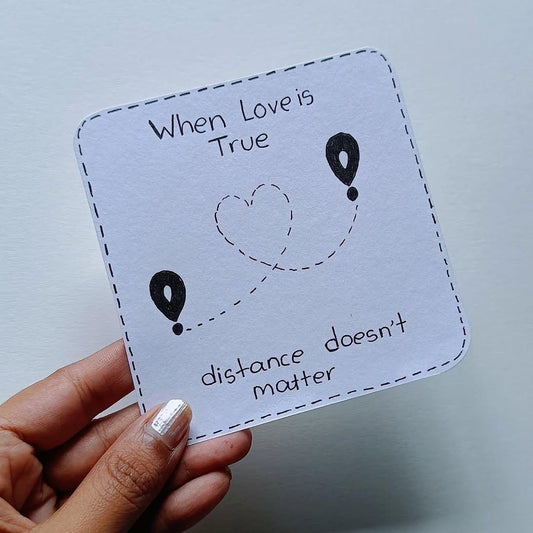 When Love is
True
distance doesn't
matter